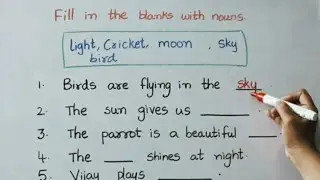 Fill in the blanks with nouns.
light, Cricket, moon , sky
bird
1. Birds are flying in the sky.
2. The sun gives us ______.
3. The parrot is a beautiful ____.
4. The ____ shines at night.
5. Vijay plays ______.